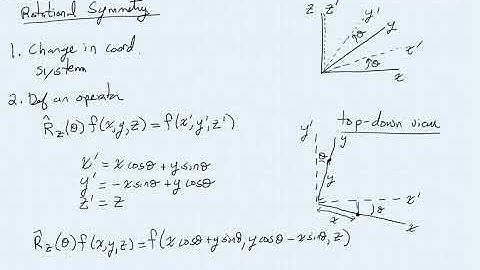 Rotational Symmetry
1. Change in coord.
system
2. Def an operator
R̂z(θ) f(x,y,z) = f(x',y',z')
x' = x cosθ + y sinθ
y' = -x sinθ + y cosθ
z' = z
R̂z(θ) f(x,y,z) = f(x cosθ + y sinθ, y cosθ - x sinθ, z)
z z' y' y
θ x'
θ x
top-down view
y' y
θ
y
x'
x θ
x